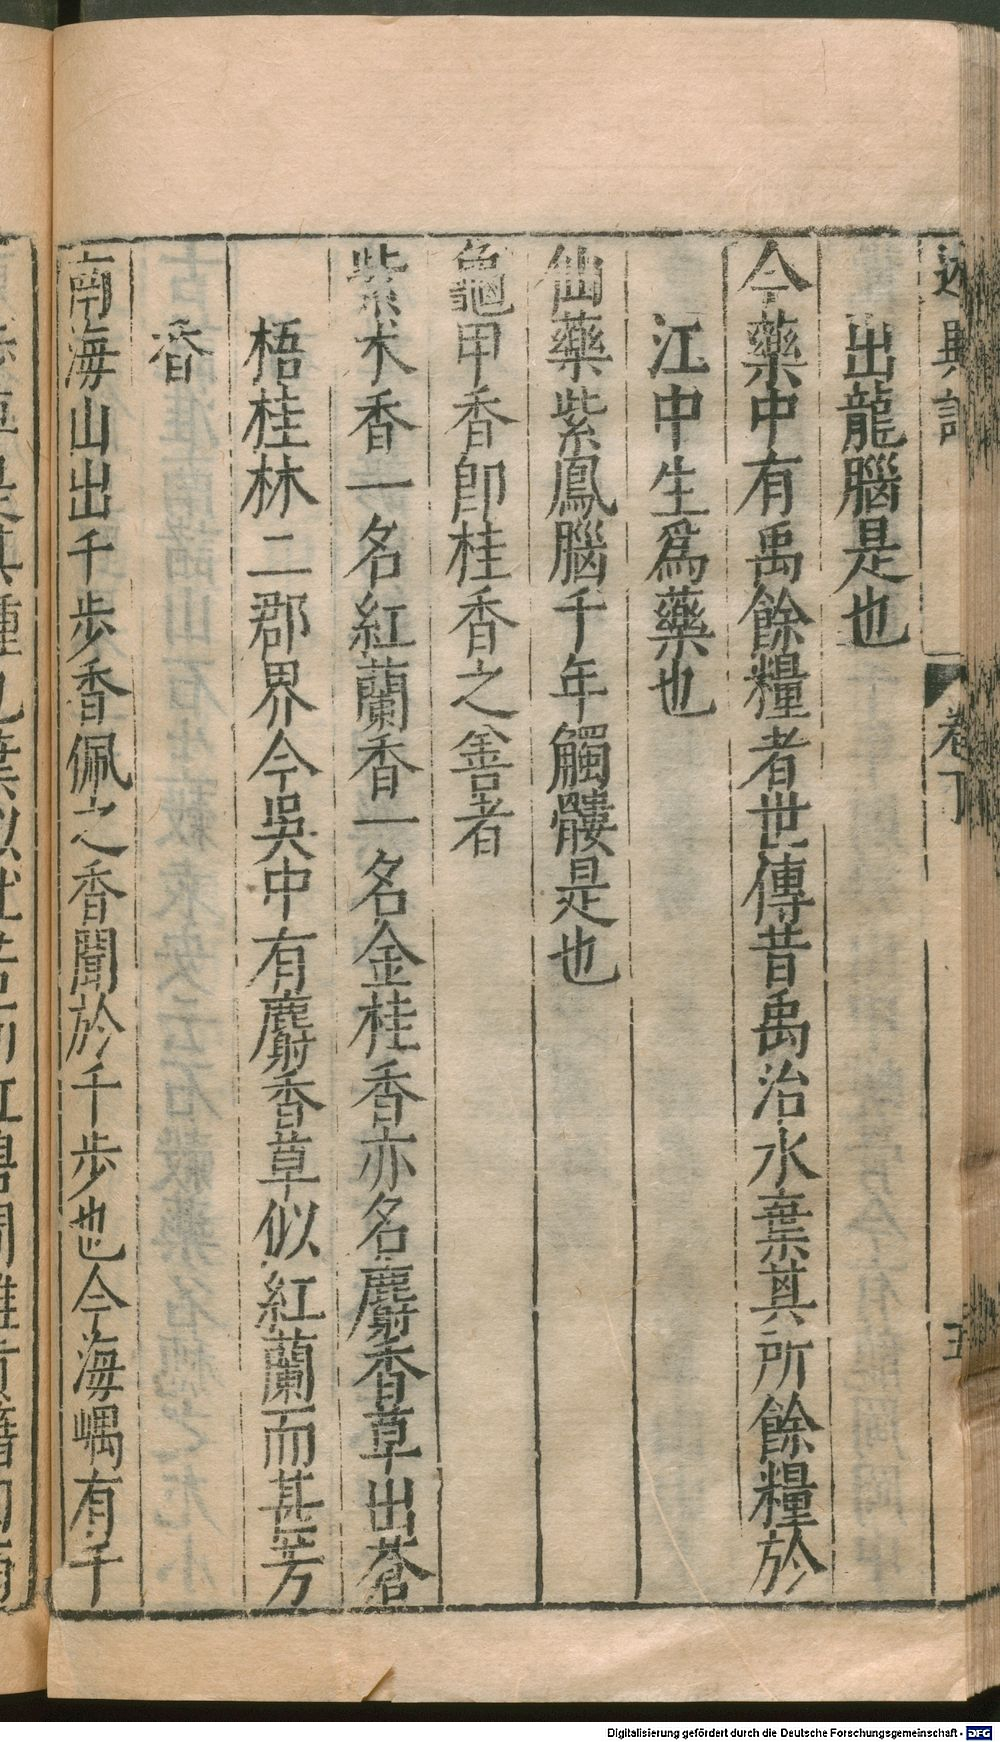 述異記 卷下 五
出龍腦是也
今藥中有禹餘糧者世傳昔禹治水棄其所餘糧於
江中生爲藥也
仙藥紫鳳腦千年髑髏是也
龜甲香卽桂香之善者
紫朮香一名紅蘭香一名金桂香亦名麝香草出蒼
梧桂林二郡界今吳中有麝香草似紅蘭而甚芳
香
南海山出千步香佩之香聞於千步也今海嵎有千
Digitalisierung gefördert durch die Deutsche Forschungsgemeinschaft - DFG